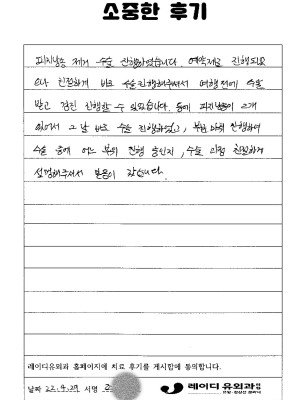 소중한 후기
피지낭종 제거 수술 진행하였습니다. 예약제로 진행되
나 친절하게 바로 수술진행해주셔서 여행전에 수술
받고 검진 진행할 수 있었습니다. 등에 피지낭종이 2개
있어서 그 날 바로 수술 진행하였고, 부분마취 진행하여
수술 중에 어느 부위 진행 중인지, 수술 과정 친절하게
설명해주셔서 믿음이 갔습니다.
레이디유외과 홈페이지에 치료 후기를 게시함에 동의합니다.
날짜 22.4.29 서명
레이디 유외과